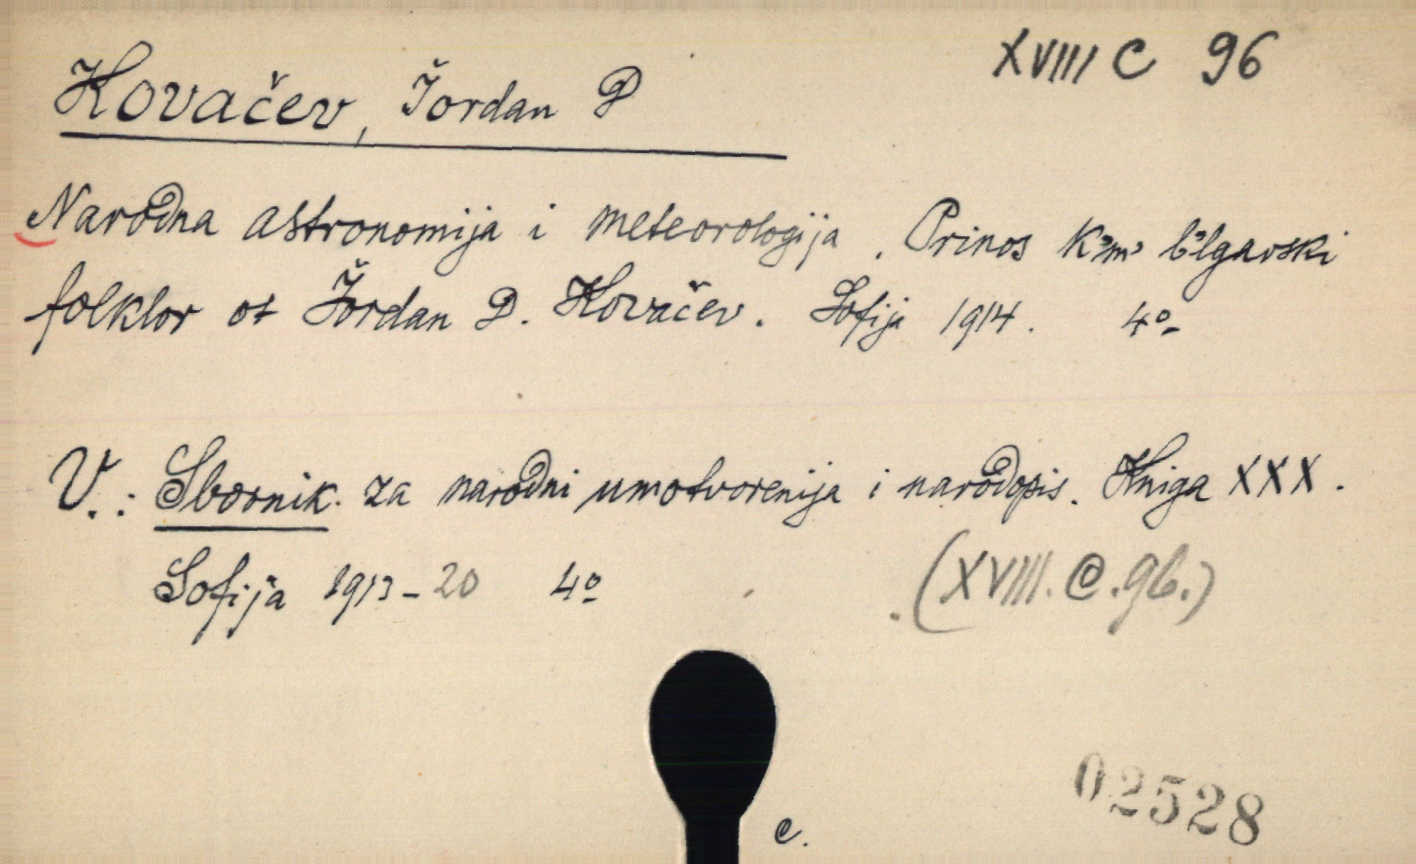 XVIII C 96
Kovačev, Ĭordan D
Narodna astronomija i meteorologija. Prinos k"m" b"lgarski
folklor ot Ĭordan D. Kovačev. Sofija 1914. 4º
V.: Sbornik za narodni umotvorenija i narodopis. Kniga XXX.
Sofija 1913-20 4º (XVIII. C. 96.)
02528
e.